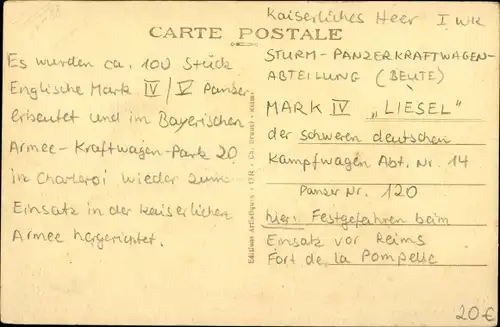 CARTE POSTALE
Es wurden ca. 100 Stück
Englische Mark IV/V Panzer
erbeutet und im Bayerischen
Armee-Kraftwagen-Park 20
in Charleroi wieder zum
Einsatz in der kaiserlichen
Armee hergerichtet.
Kaiserliches Heer I WK
STURM-PANZERKRAFTWAGEN-
ABTEILUNG (BEUTE)
MARK IV „LIESEL"
der schweren deutschen
Kampfwagen Abt. Nr. 14
Panzer Nr. 120
hier: Festgefahren beim
Einsatz vor Reims
Fort de la Pompelle
20€